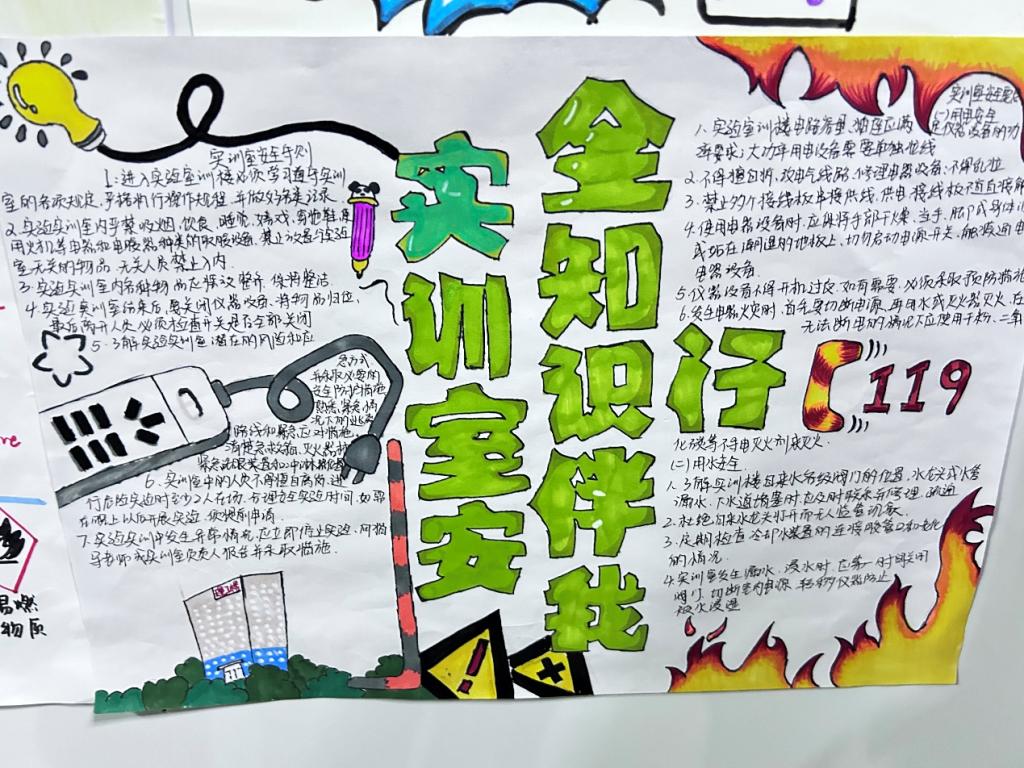 实训室安
全知识伴我
行
119
实训室安全守则
1.进入实验室训楼必须学习遵守实训
室的各项规定,严格执行操作规程,并做好各类记录.
2.实验实训室内严禁吸烟,饮食,睡觉,嬉戏,
室无关的物品,无关人员禁止入内.
3.实验实训室内各种物品应摆设整齐,保持整洁.
4.实验实训室结束后,要关闭仪器设备,将物品归位,
最后离开人员必须检查开关是否全部关闭
5.了解实验实训室潜在的风险和应
急方式
并采取必要的
安全防护措施
熟悉紧急情
况下的逃
路线和紧急应对措施,
清楚急救箱,灭火器材
紧急洗眼装置和冲淋
6.实训室中的人员不得擅自离岗,进
行危险实验时至少2人在场,合理安全实验时间,如需
开展实验,须提前申请.
7.实验实训中发生异常情况,应立即停止实验,向指
导老师或实训室负责人报告并采取措施.
实训室安全要
(一)用电安全
1.实验室训楼电路容量、插座应满足仪器设备的功
率要求;大功率用电设备需要单独拉线
2.不得擅自拆、改电气线路、修理电器设备;不得乱拉
3.禁止多个接线板串接供线,供电接线板不宜直接
4.使用电器设备时,应保持手部干燥.当手、脚或身体
或站在潮湿的地板上,切勿启动电源开关、触摸通电
电器设备.
5.仪器设备不得开机过夜,如有需要,必须采取预防措施
6.发生电器火灾时,首先要切断电源,再用水或灭火器灭火.在
无法断电的情况下应使用干粉、二氧
化碳等不导电灭火剂灭火.
(二)用水安全.
1.了解实训楼自来水各级阀门的位置,水龙头或水管
漏水、下水道堵塞时,应及时联系并修理、疏通
2.杜绝自来水龙头打开而无人监管现象.
3.定期检查冷却水装置的连接胶管口和老化
的情况.
4.实训室发生漏水、浸水时,应第一时间关闭
阀门,切断室内电源,转移仪器防止
被水浸透
易燃
物质
re